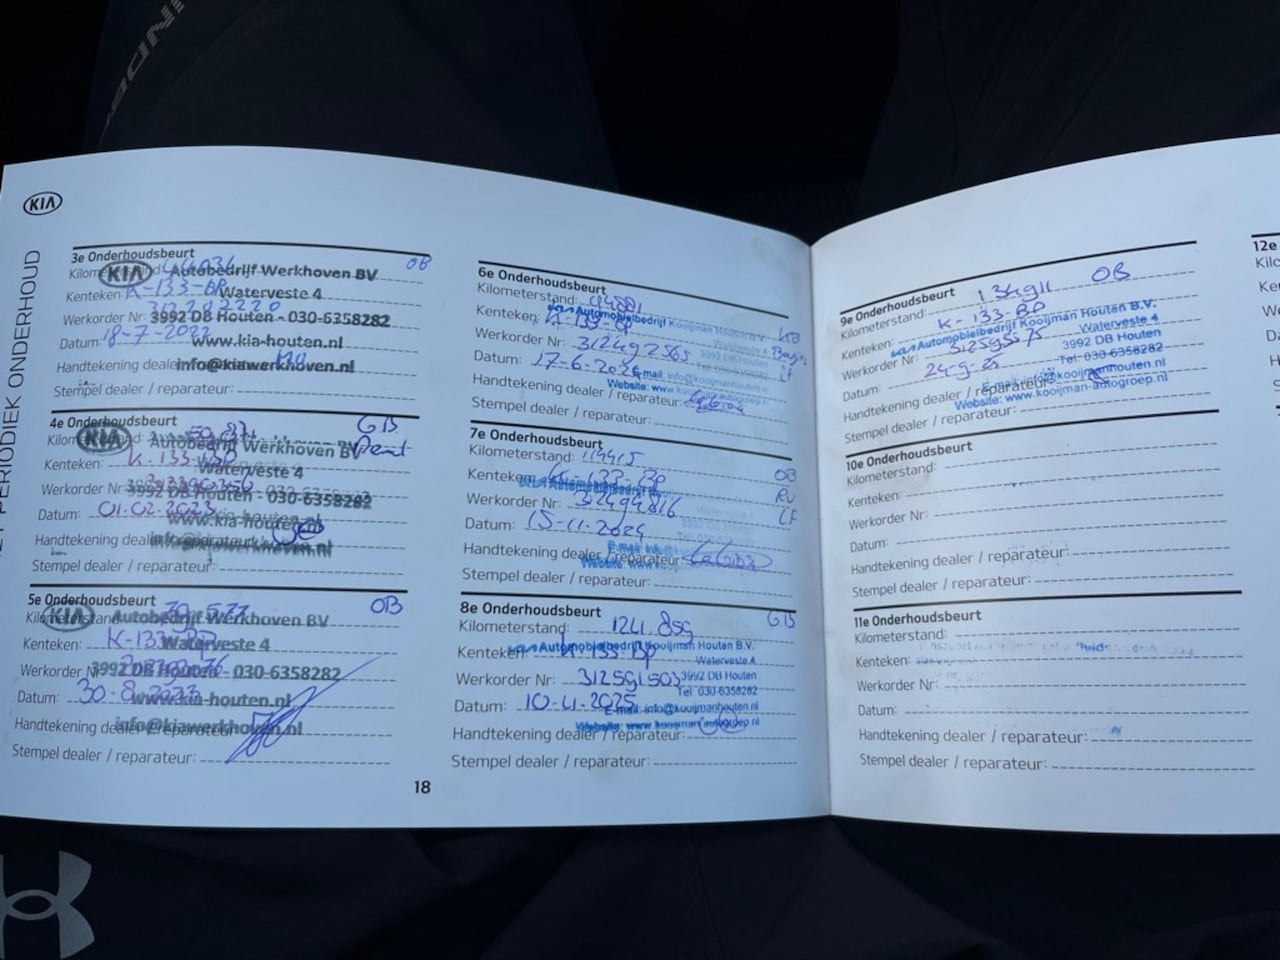 KIA
PERIODIEK ONDERHOUD
3e Onderhoudsbeurt
OB
KIA Autobedrijf Werkhoven BV
Kenteken: K-133-BP
Waterveste 4
Werkorder Nr:
3992 DB Houten - 030-6358282
Datum: 18-7-2022
www.kia-houten.nl
Handtekening dealer
info@kiawerkhoven.nl
Stempel dealer / reparateur:
4e Onderhoudsbeurt
GB
KIA Autobedrijf Werkhoven BV
Kenteken: K-133-BP
Waterveste 4
Werkorder Nr:
3992 DB Houten - 030-6358282
Datum: 01-02-2023
www.kia-houten.nl
Handtekening dealer / reparateur:
info@kiawerkhoven.nl
Stempel dealer / reparateur:
5e Onderhoudsbeurt
OB
Kilometerstand:
KIA Autobedrijf Werkhoven BV
Kenteken: K-133-BP
Waterveste 4
Werkorder Nr:
3992 DB Houten - 030-6358282
Datum: 30-8-2023
www.kia-houten.nl
Handtekening dealer / reparateur:
info@kiawerkhoven.nl
Stempel dealer / reparateur:
18
6e Onderhoudsbeurt
Kilometerstand:
Kenteken: K-133-BP
Automobielbedrijf Kooijman Houten B.V.
Waterveste 4
Werkorder Nr: 312492565
3992 DB Houten
Datum: 17-6-2024
E-mail: info@kooijmanhouten.nl
Handtekening dealer / reparateur:
Website: www.kooijman-autogroep.nl
Stempel dealer / reparateur:
7e Onderhoudsbeurt
Kilometerstand: 114415
OB
Kenteken: K-133-BP
Werkorder Nr: 312494816
LF
Datum: 15-11-2024
Handtekening dealer / reparateur:
Stempel dealer / reparateur:
8e Onderhoudsbeurt
GB
Kilometerstand: 124.859
Kenteken: K-133-BP
Automobielbedrijf Kooijman Houten B.V.
Waterveste 4
Werkorder Nr: 312591503
3992 DB Houten
Tel: 030-6358282
Datum: 10-4-2025
E-mail: info@kooijmanhouten.nl
Website: www.kooijman-autogroep.nl
Handtekening dealer / reparateur:
Stempel dealer / reparateur:
9e Onderhoudsbeurt
OB
Kilometerstand: 134911
Kenteken: K-133-BP
Automobielbedrijf Kooijman Houten B.V.
Waterveste 4
Werkorder Nr: 312595575
3992 DB Houten
Tel: 030-6358282
Datum: 24-9-25
E-mail: info@kooijmanhouten.nl
Handtekening dealer / reparateur:
Website: www.kooijman-autogroep.nl
Stempel dealer / reparateur:
10e Onderhoudsbeurt
Kilometerstand:
Kenteken:
Werkorder Nr:
Datum:
Handtekening dealer / reparateur:
Stempel dealer / reparateur:
11e Onderhoudsbeurt
Kilometerstand:
Kenteken:
Werkorder Nr:
Datum:
Handtekening dealer / reparateur:
Stempel dealer / reparateur:
12e